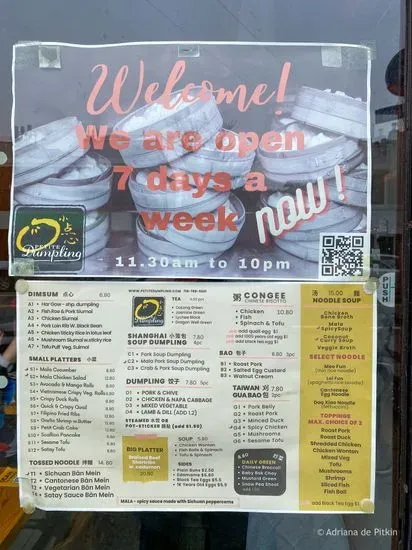 Welcome!
We are open
7 days a
week now!
PETITE
Dumpling
11.30am to 10pm
PUSH
DIMSUM 点心 6.80
A1 • Har Gow - shrp. dumpling
A2 • Fish Roe & Pork Siumai
A3 • Chicken Siumai
A4 • Pork Loin Rib W. Black Bean
A5 • Chicken Sticky Rice in lotus leaf
A6 • Mushroom Siumai w.sticky rice
A7 • Tofu Puff Veg. Sumai
SMALL PLATTERS 小菜
S1 • Mala Cucumber
S2 • Mala Chicken Salad
S3 • Avocado & Mango Rolls
S4 • Vietnamese Crispy Veg. Rolls
S5 • Crispy Duck Rolls
S6 • Quick & Crispy Quad
S7 • Filipino Fried Tofu
S8 • Garlic Shrimp w. Butter
S9 • Petit Crab Cake
S10 • Scallion Pancake
S11 • Sesame Tofu
S12 • Satay Tofu
TOSSED NOODLE 拌麵 14.80
T1 • Sichuan Bān Mein
T2 • Cantonese Bān Mein
T3 • Vegetarian Bān Mein
T4 • Satay Sauce Bān Mein
WWW.PETITEDUMPLING.COM
TEA
Oolong Green
Jasmine Green
Lychee Black
Dragon Well Green
SHANGHAI 小笼包
SOUP DUMPLING 7.80
C1 • Pork Soup Dumpling
C2 • Mala Pork Soup Dumpling
C3 • Crab & Pork Soup Dumpling
DUMPLING 饺子 7.80
D1 • PORK & CHIVE
D2 • CHICKEN & NAPA CABBAGE
D3 • MIXED VEGETABLE
D4 • LAMB & DILL (ADD 1.2)
STEAMED OR
POT-STICKER (add $1.50)
BIG PLATTER
SOUP 5.80
Chicken Wonton
Fish Balls & Spinach
Tofu & Spinach
SIDES
Plain Bunz $2.50
Edamame $6.8
MALA = spicy sauce made with Sichuan peppercorns
粥 CONGEE
CHINESE RISOTTO
• Chicken 10.80
• Fish
• Spinach & Tofu
BAO 包子
B1 • Roast Pork
B2 • Salted Egg Custard
B3 • Walnut Cream
TAIWAN 刈
GUA BAO 包 7.80
G1 • Pork Belly
G2 • Roast Pork
G3 • Minced Duck
G4 • Spicy Chicken
G5 • Mushrooms
G6 • Sesame Tofu
DAILY GREEN
• Chinese Broccoli
• Baby Bok Choy
• Mustard Green
• Snow Pea Shoot
湯 15.00 麵
NOODLE SOUP
Chicken
Bone Broth
Mala
SpicySoup
Coconut
Curry Soup
Veggie Broth
SELECT NOODLE
Mee Fun
(thin rice noodle)
Lai Fan
(spaghetti rice noodle)
Egg Noodle
(wonton)
TOPPINGS
MAX. CHOICE OF 2
Roast Pork
Roast Duck
Shredded Chicken
Chicken Wonton
Mixed Veg
Tofu
Mushrooms
Shrimp
Sliced Fish
Fish Ball
© Adriana de Pitkin